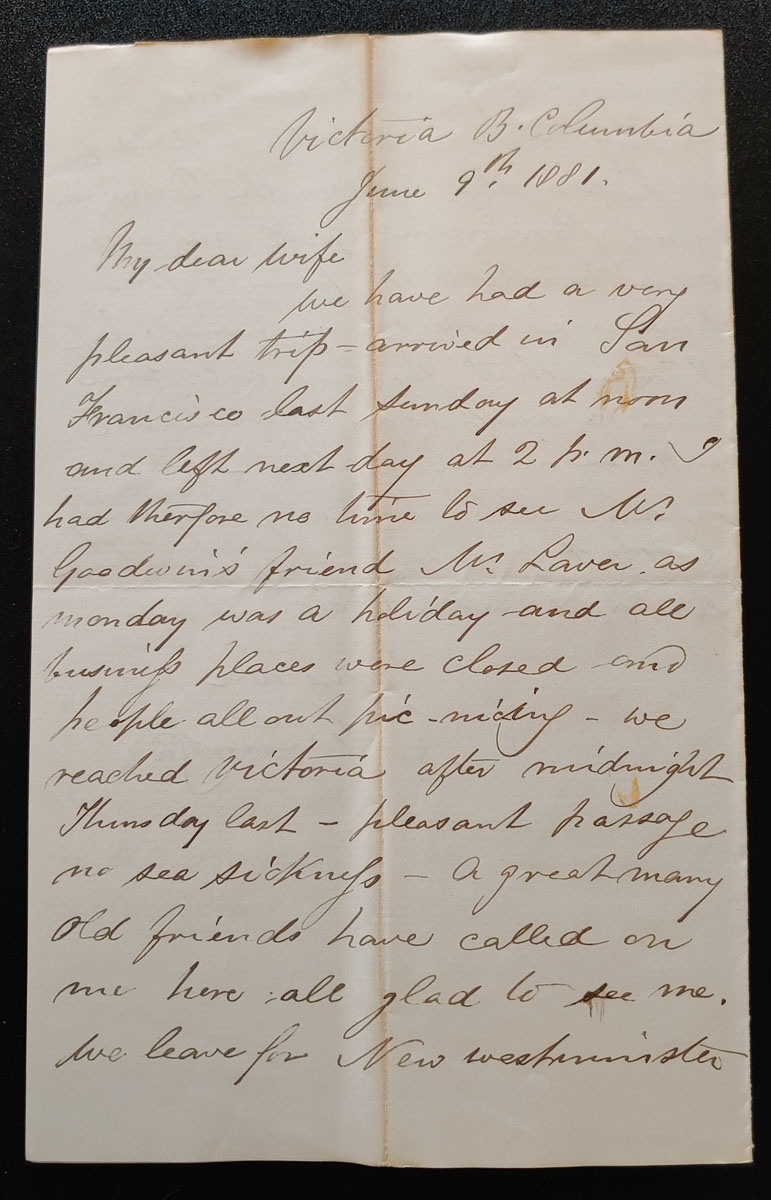 Victoria B. Columbia
June 9th. 1881.
My dear wife
We have had a very
pleasant trip - arrived in San
Francisco last Sunday at noon
and left next day at 2 p. m. I
had therfore no time to see Mr.
Goodwin's friend Mr. Laver. as
monday was a holiday and all
business places were closed and
people all out pic-nicing - we
reached Victoria after midnight
Thursday last - pleasant passage
no sea sickness - A great many
Old friends have called on
me here. all glad to see me.
We leave for New westminster